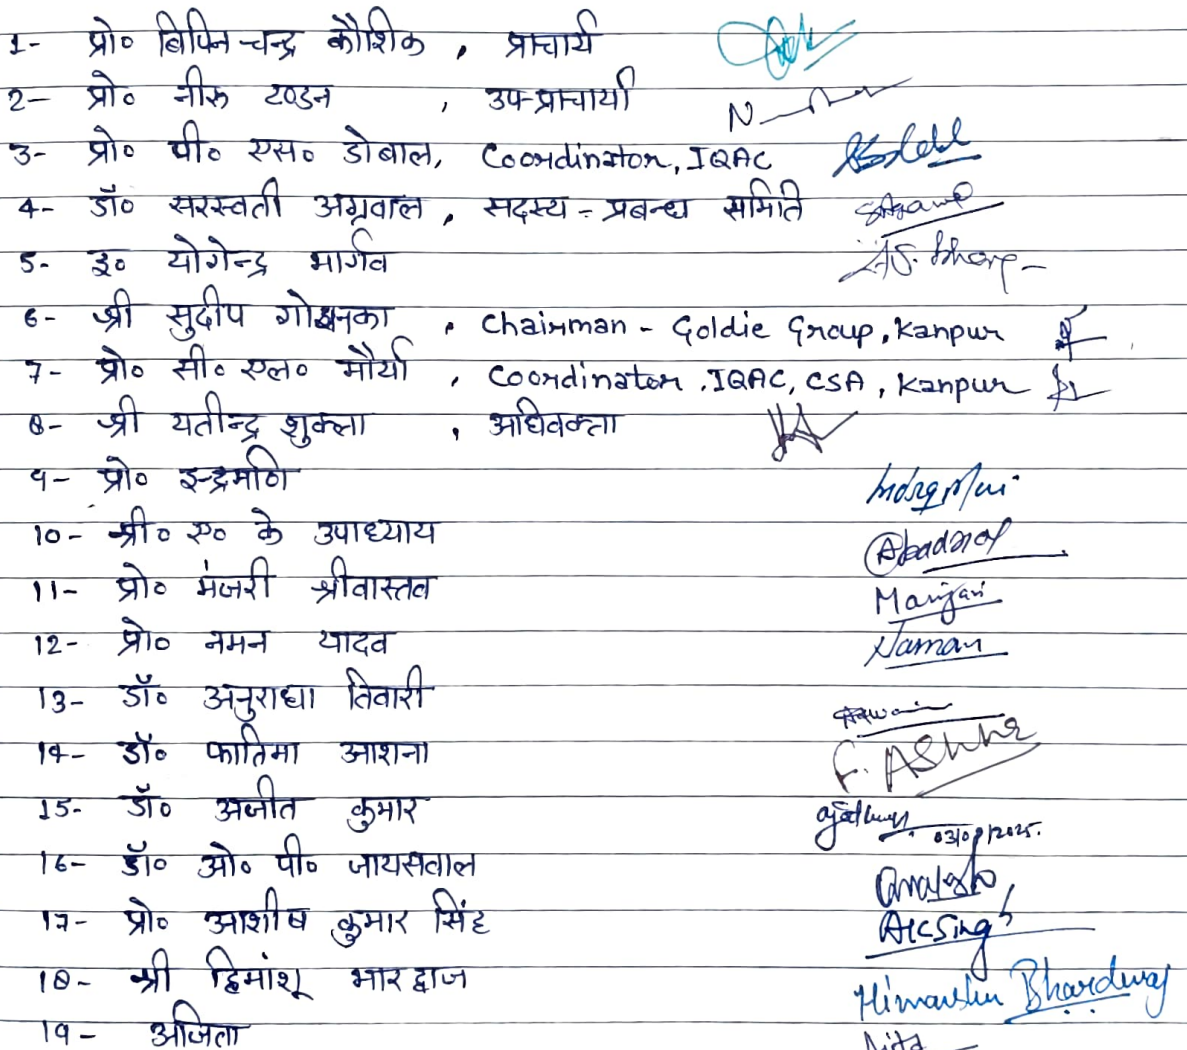 1- प्रो० बिपिन चन्द्र कौशिक , प्राचार्य
2- प्रो० नीरू टण्डन , उप-प्राचार्या
3- प्रो० पी० एस० डोबाल, Coordinator, IQAC
4- डॉ० सरस्वती अग्रवाल , सदस्य - प्रबन्ध समिति
5- इ० योगेन्द्र भार्गव
6- श्री सुदीप गोयनका , Chairman - Goldie Group, Kanpur
7- प्रो० सी० एल० मौर्या , Coordinator, IQAC, CSA, Kanpur
8- श्री यतीन्द्र शुक्ला , अधिवक्ता
9- प्रो० इन्द्रमणि Indramani
10- श्री० ए० के उपाध्याय
11- प्रो० मंजरी श्रीवास्तव Manjari
12- प्रो० नमन यादव Naman
13- डॉ० अनुराधा तिवारी
14- डॉ० फातिमा आशना F. Ashna
15- डॉ० अजीत कुमार
16- डॉ० ओ० पी० जायसवाल
17- प्रो० आशीष कुमार सिंह AKSingh
18- श्री हिमांशू भारद्वाज Himanshu Bhardwaj
19- अजिता